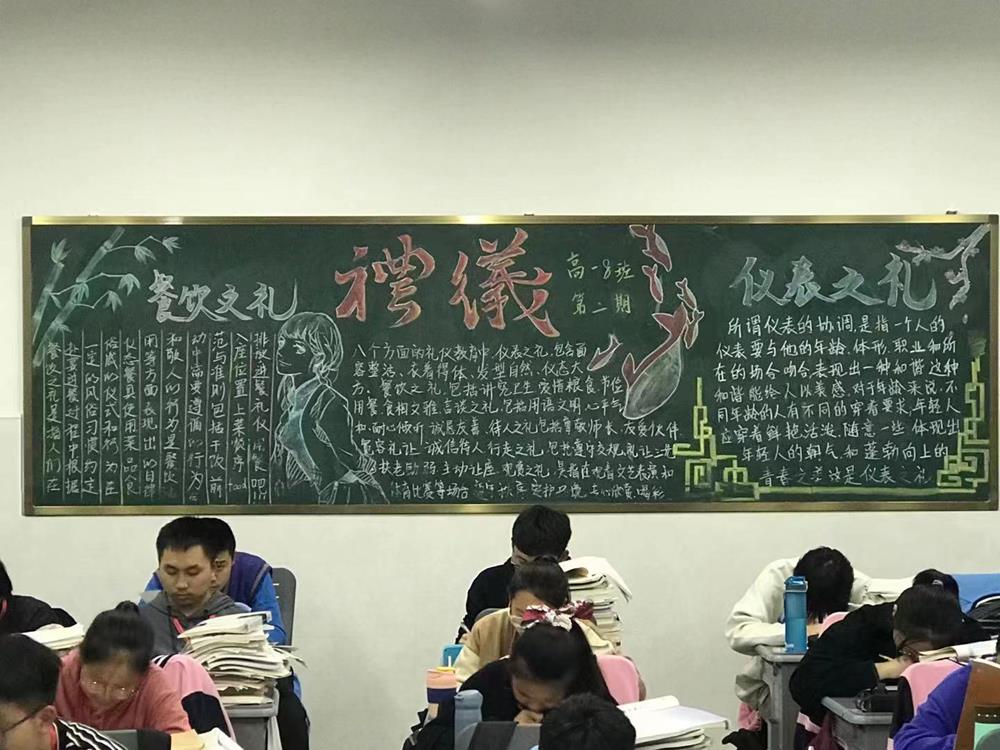 禮儀
高一8班
第二期
餐饮之礼
餐饮之礼是指人们在
赴宴进餐过程中根据
一定的风俗习惯约定
俗成的仪式和行为在
仪态餐具使用菜品食
用等方面表现出的自律
和敬人的行为是餐饮
动中需要遵循的行为
范与准则包括干饭前
入座位置上菜次序 Food
排放进餐礼仪
八个方面的礼仪教育中,仪表之礼,包含面
容整洁、衣着得体、发型自然、仪态大
方、餐饮之礼,包括讲究卫生爱惜粮食节俭
用餐、食相文雅言谈之礼,包括用语文明心平气
和耐心倾听诚恳友善、待人之礼包括尊敬师长友爱伙伴
宽容礼让诚信待人行走之礼包括遵守交规礼让三
扶老助弱主动让座观赏之礼是指在观看文艺表演和
体育比赛等场合
仪表之礼
所谓仪表的协调,是指一个人的
仪表要与他的年龄、体形、职业和所
在的场合吻合表现出一种和谐这种
和谐能给人以美感,对于年龄来说,不
同年龄的人有不同的穿着要求,年轻人
应穿着鲜艳活泼、随意一些体现出
年轻人的朝气和蓬勃向上的
青春之美这是仪表之礼